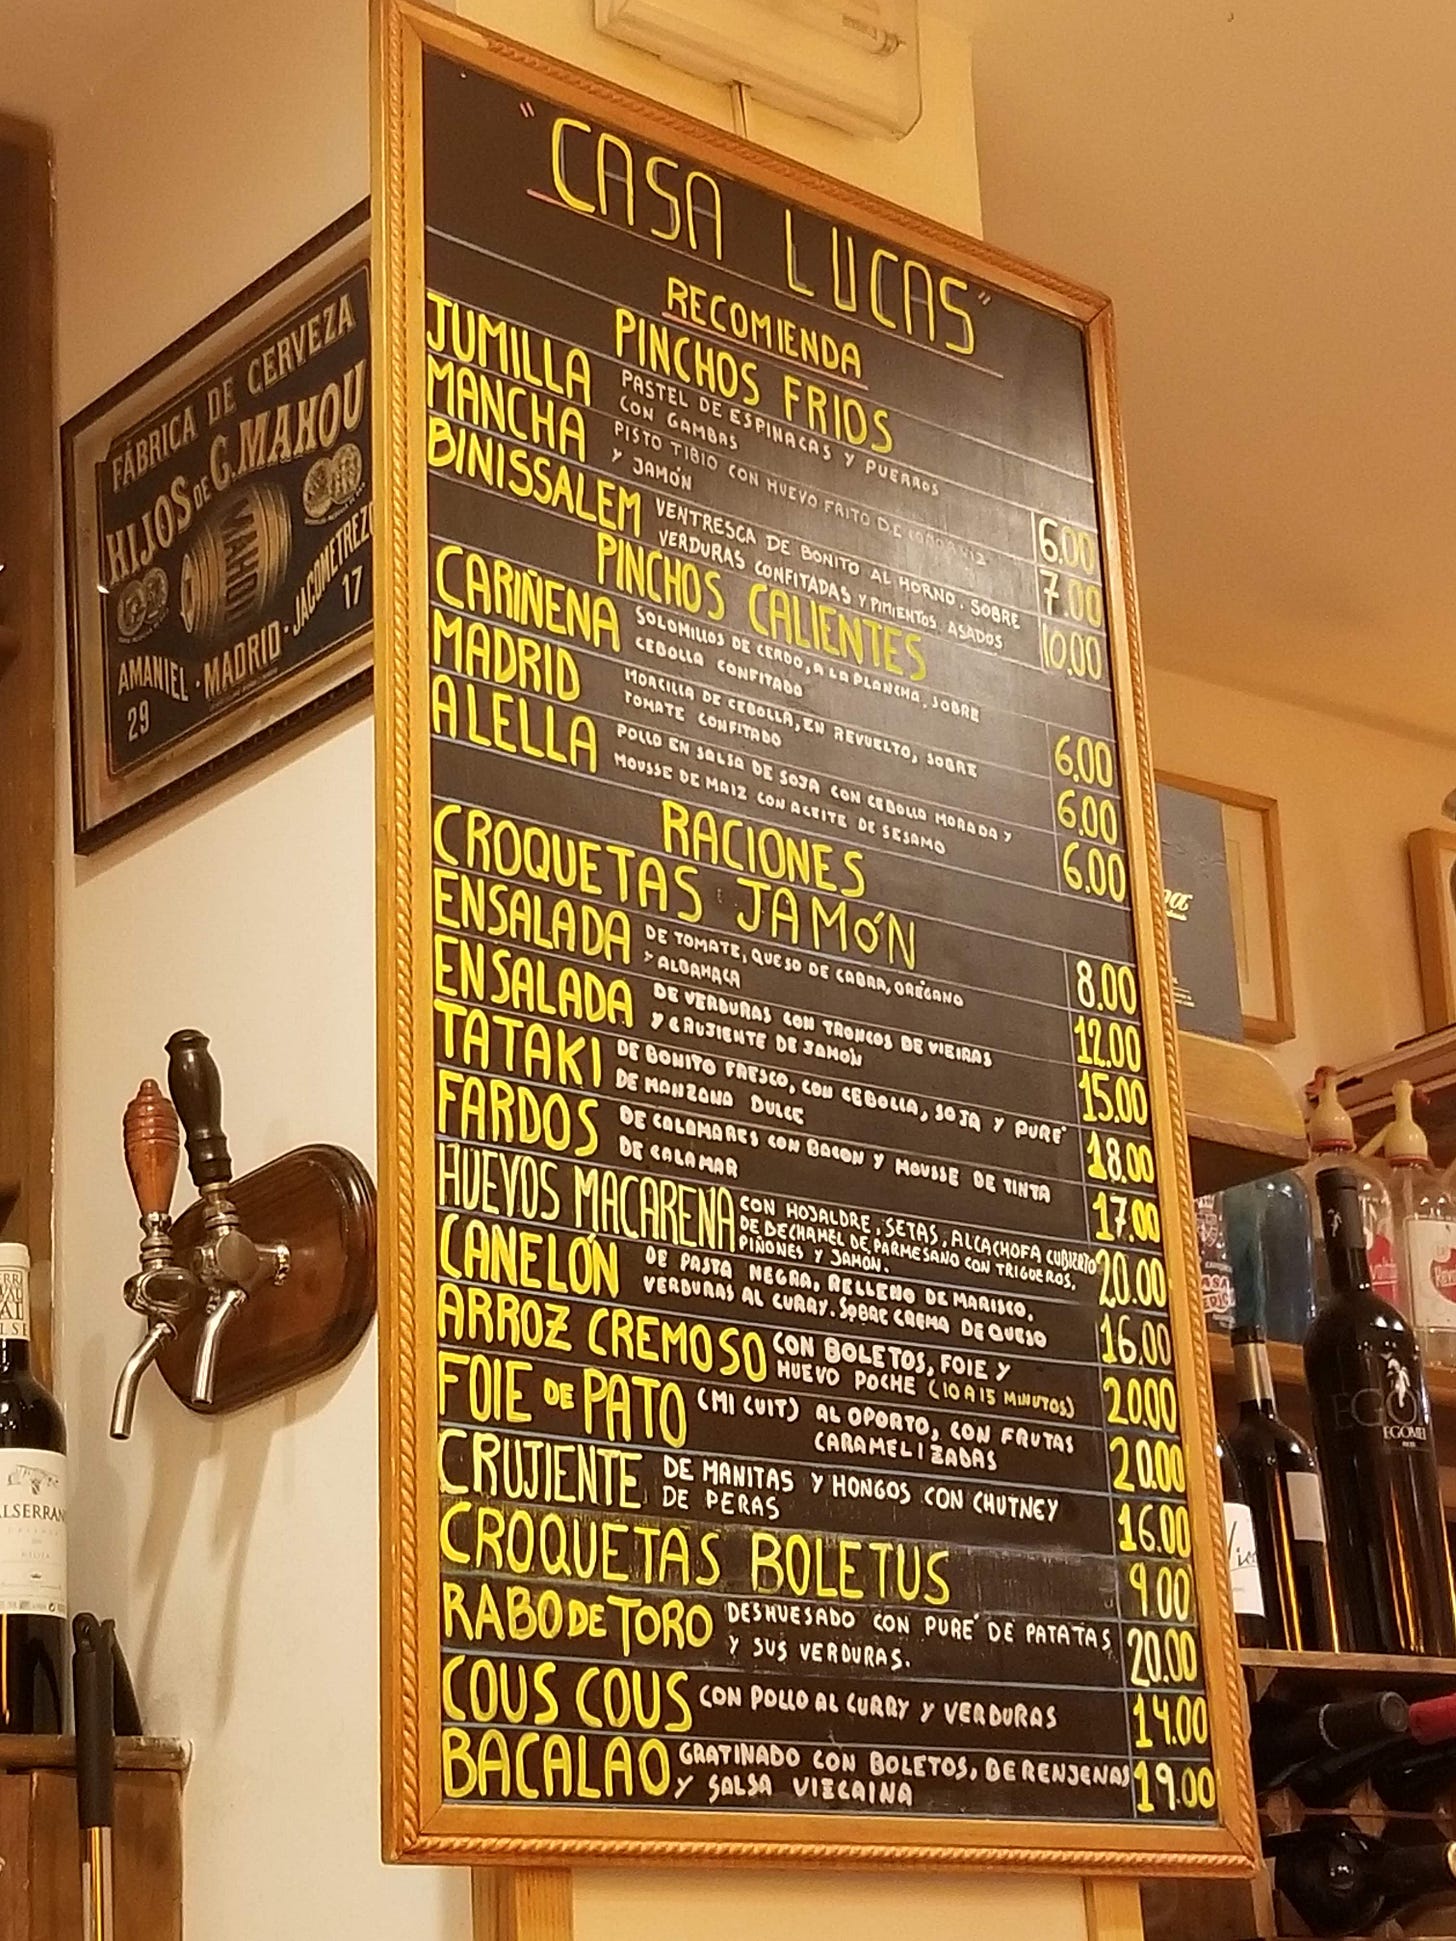 "CASA LUCAS"
RECOMIENDA
PINCHOS FRIOS
JUMILLA PASTEL DE ESPINACAS Y PUERROS
CON GAMBAS 6.00
MANCHA PISTO TIBIO CON HUEVO FRITO DE CODORNIZ
Y JAMÓN 7.00
BINISSALEM VENTRESCA DE BONITO AL HORNO. SOBRE
VERDURAS CONFITADAS Y PIMIENTOS ASADOS 10.00
PINCHOS CALIENTES
CARIÑENA SOLOMILLOS DE CERDO, A LA PLANCHA, SOBRE
CEBOLLA CONFITADA 6.00
MADRID MORCILLA DE CEBOLLA, EN REVUELTO, SOBRE
TOMATE CONFITADO 6.00
ALELLA POLLO EN SALSA DE SOJA CON CEBOLLA MORADA Y
MOUSSE DE MAIZ CON ACEITE DE SESAMO 6.00
RACIONES
CROQUETAS JAMÓN 8.00
ENSALADA DE TOMATE, QUESO DE CABRA, ORÉGANO
Y ALBAHACA 12.00
ENSALADA DE VERDURAS CON TRONCOS DE VIEIRAS
Y CRUJIENTE DE JAMÓN 15.00
TATAKI DE BONITO FRESCO, CON CEBOLLA, SOJA Y PURÉ
DE MANZANA DULCE 18.00
FARDOS DE CALAMARES CON BACON Y MOUSSE DE TINTA
DE CALAMAR 17.00
HUEVOS MACARENA CON HOJALDRE, SETAS, ALCACHOFA CUBIERTO
DE BECHAMEL DE PARMESANO CON TRIGUEROS,
PIÑONES Y JAMÓN. 20.00
CANELÓN DE PASTA NEGRA, RELLENO DE MARISCO,
VERDURAS AL CURRY. SOBRE CREMA DE QUESO 16.00
ARROZ CREMOSO CON BOLETOS, FOIE Y
HUEVO POCHE (10 A 15 MINUTOS) 20.00
FOIE DE PATO (MI CUIT) AL OPORTO, CON FRUTAS
CARAMELIZADAS 20.00
CRUJIENTE DE MANITAS Y HONGOS CON CHUTNEY
DE PERAS 16.00
CROQUETAS BOLETUS 9.00
RABO DE TORO DESHUESADO CON PURÉ DE PATATAS
Y SUS VERDURAS. 20.00
COUS COUS CON POLLO AL CURRY Y VERDURAS 14.00
BACALAO GRATINADO CON BOLETOS, BERENJENAS
Y SALSA VIZCAINA 19.00
FÁBRICA DE CERVEZA
HIJOS DE G. MAHOU
MAHOU
AMANIEL · MADRID · JACOMETREZO
29 17
EGOMEI
RIOJA